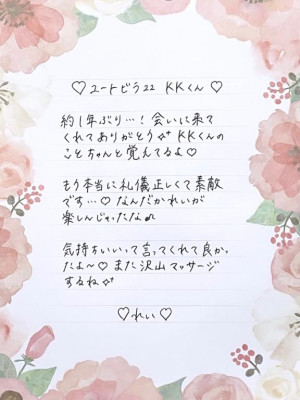 ♡ユートピア22 KKくん♡
約1年ぶり…！会いに来て
くれてありがとう✨ KKくんの
ことちゃんと覚えてるよ♡
もう本当に礼儀正しくて素敵
です…♡ なんだかれいが
楽しんじゃったな♪
気持ちいいって言ってくれて良かっ
たよ〜♡ また沢山マッサージ
するね✨
♡れい♡